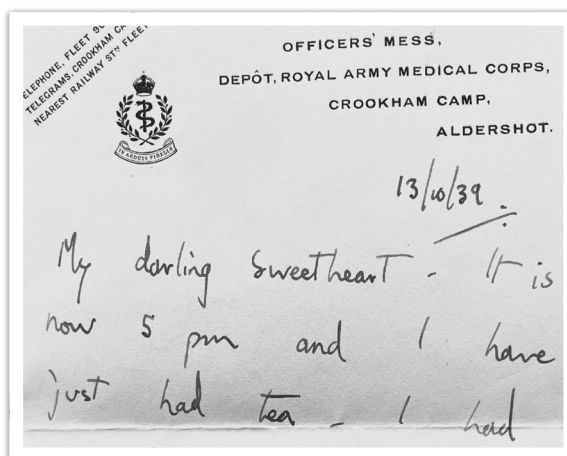 TELEPHONE, FLEET
TELEGRAMS, CROOKHAM
NEAREST RAILWAY STN FLEET
OFFICERS' MESS,
DEPÔT, ROYAL ARMY MEDICAL CORPS,
CROOKHAM CAMP,
ALDERSHOT.
IN ARDUIS FIDELIS
13/10/39.
My darling Sweetheart - It is
now 5 pm and I have
just had tea - I had